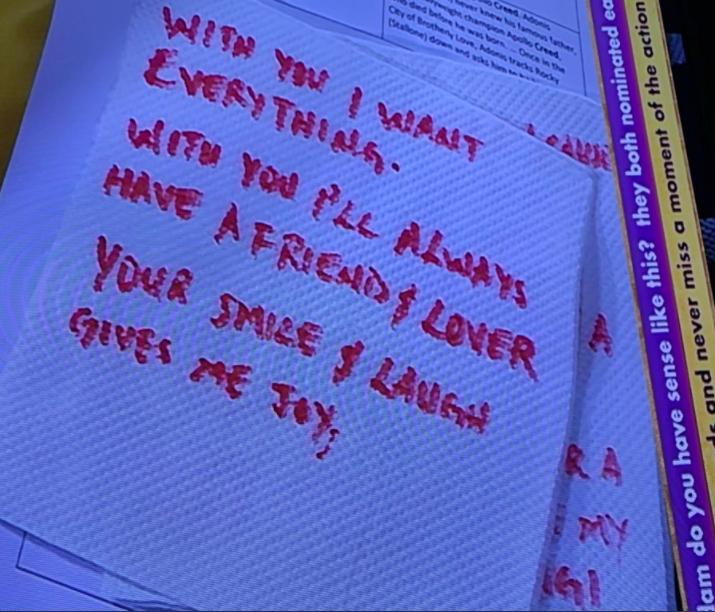 never knew his famous father,
died before he was born. ... Once in the
City of Brotherly Love, Adonis tracks Rocky
(Stallone) down and asks him to
WITH YOU I WANT
EVERYTHING.
WITH YOU I'LL ALWAYS
HAVE A FRIEND & LOVER
YOUR SMILE & LAUGH
GIVES ME JOY,
A
R A
MY
do you have sense like this? they both nominated
and never miss a moment of the action